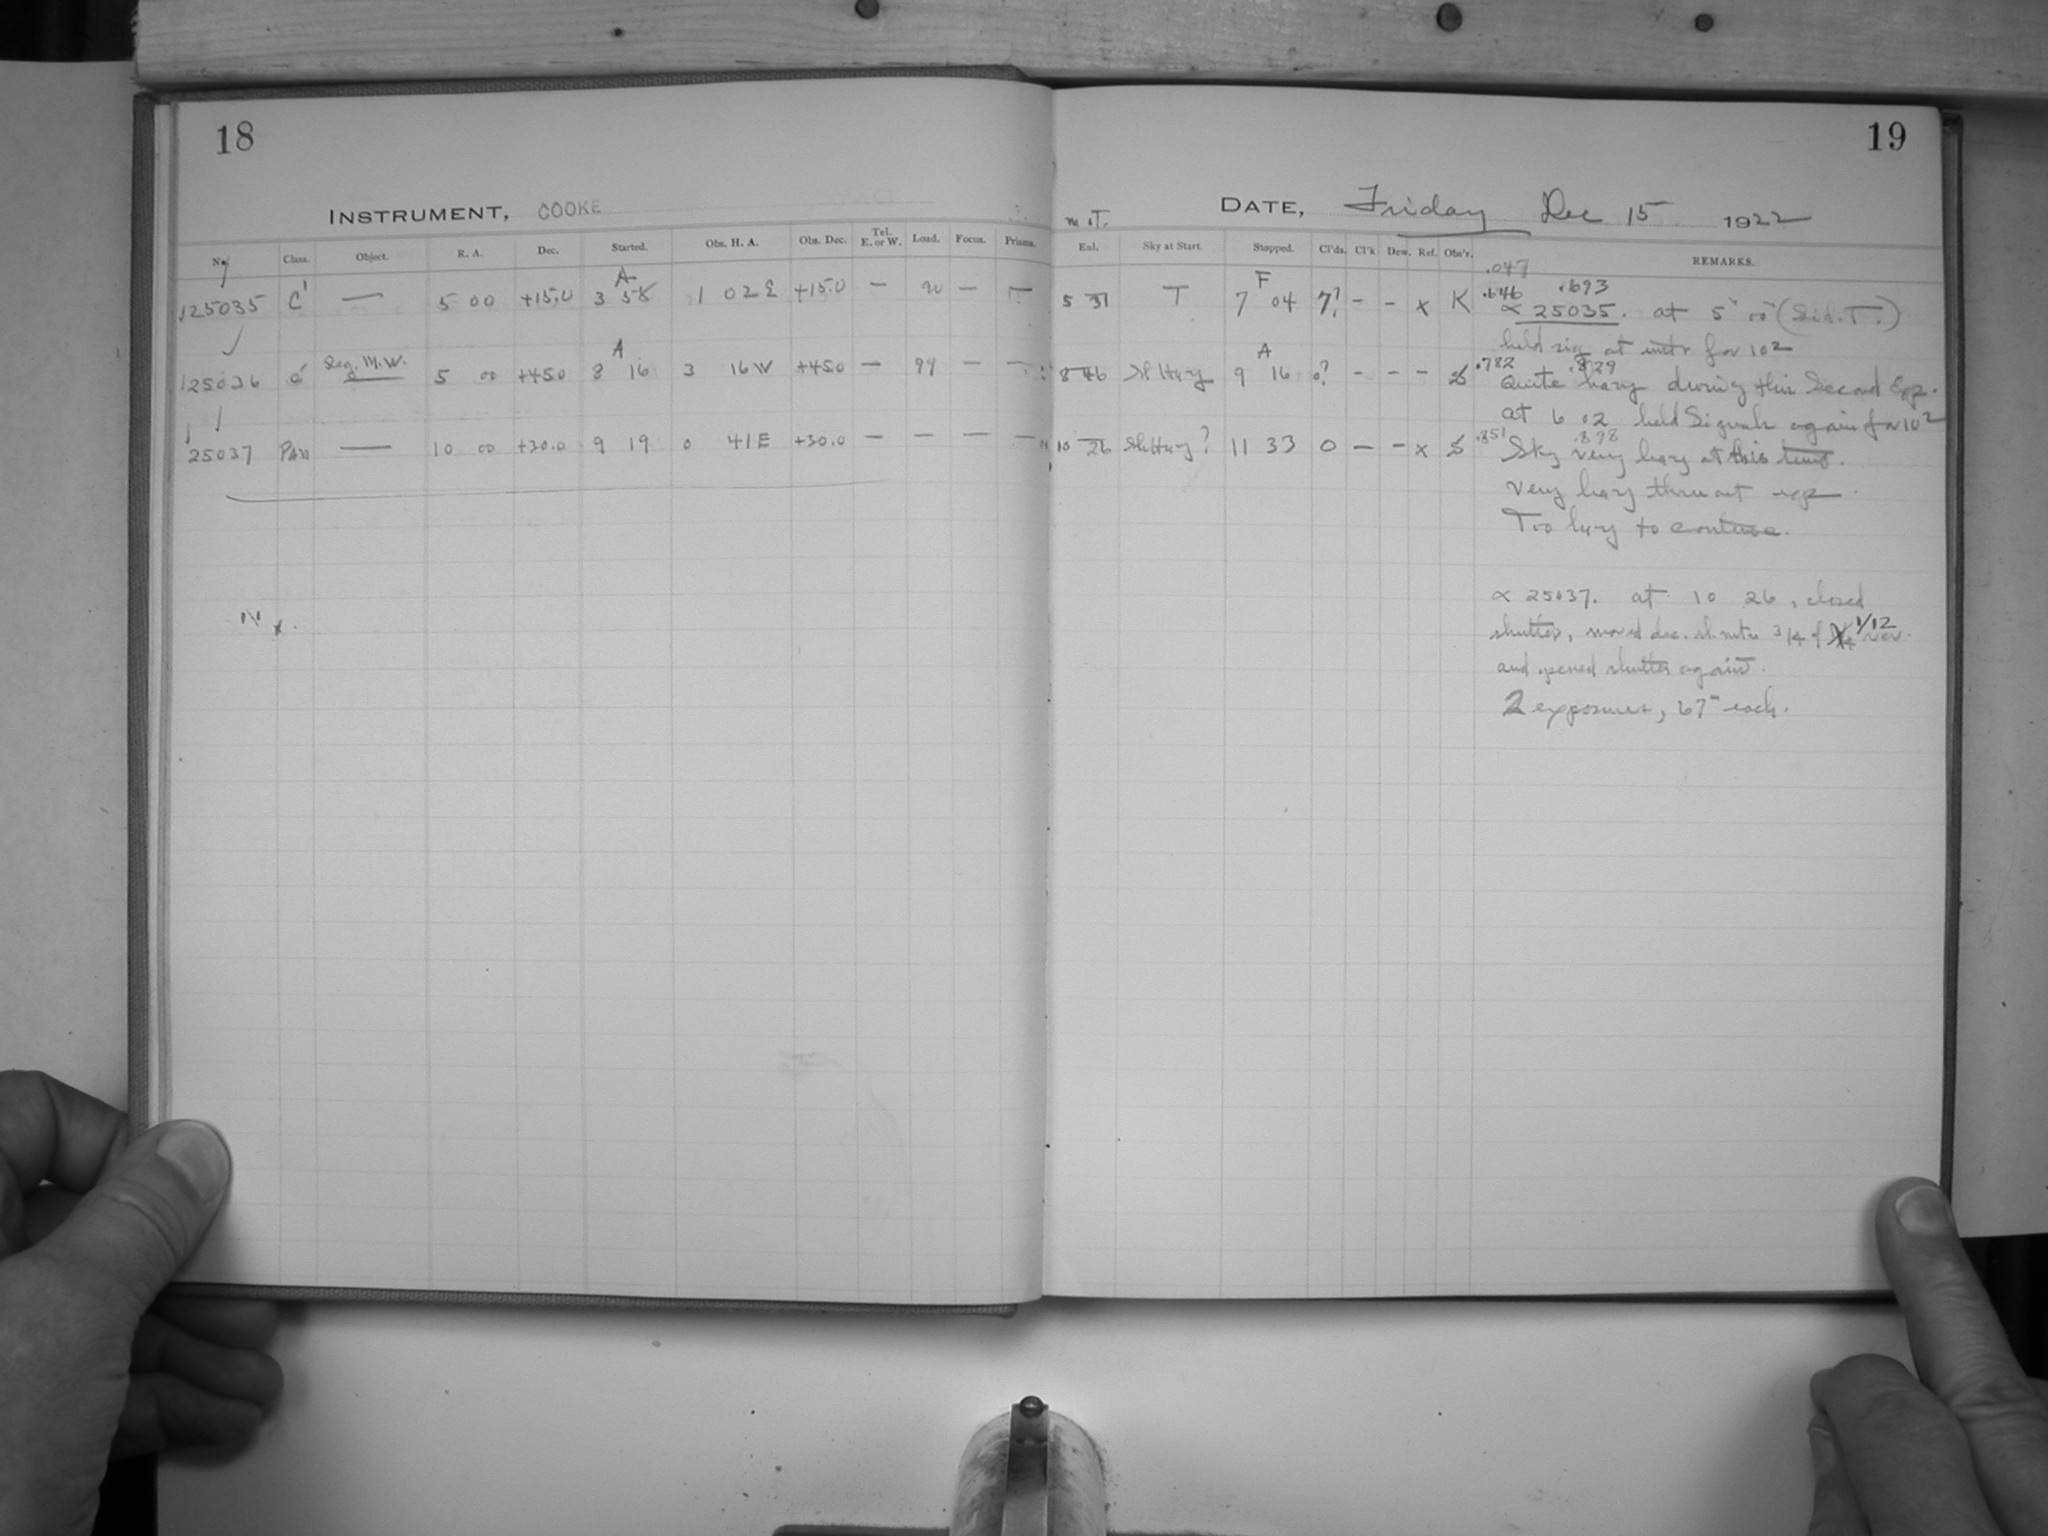 18
INSTRUMENT, COOKE
No. Class. Object. R. A. Dec. Started. Obs. H. A. Obs. Dec. Tel. E. or W. Load. Focus. Prisms.
A
25035 C — 5 00 +15.0 3 58 1 02 E +15.0 — —
A
25036 C Seq. M.W. 5 00 +45.0 8 16 3 16 W +45.0 — 99 — —
25037 10 00 +30.0 9 19 0 41 E +30.0 — — — —
19
DATE, Friday Dec 15 1922
Eal. Sky at Start. Stopped. Cl'ds. Cl'k Dew. Ref. Obs'r. REMARKS.
.047
F
.646 .693
5 31 T 7 04 7? - - x K ∝ 25035. at 5 00 (Sid. T.)
held sig at intr for 10 2
A
.782 .829
8 46 Sl Hazy 9 16 0? - - - S Quite hazy during this Second Exp.
at 6 02 held Signals again for 10 2
.851 .898
10 26 Sl Hazy? 11 33 0 — - x S Sky very hazy at this time.
Very hazy thruout exp.
Too hazy to continue.
∝ 25037. at 10 26, closed
shutter, moved dec. 3/4 of 1/12 rev.
and opened shutter again.
2 exposures, 67m each.